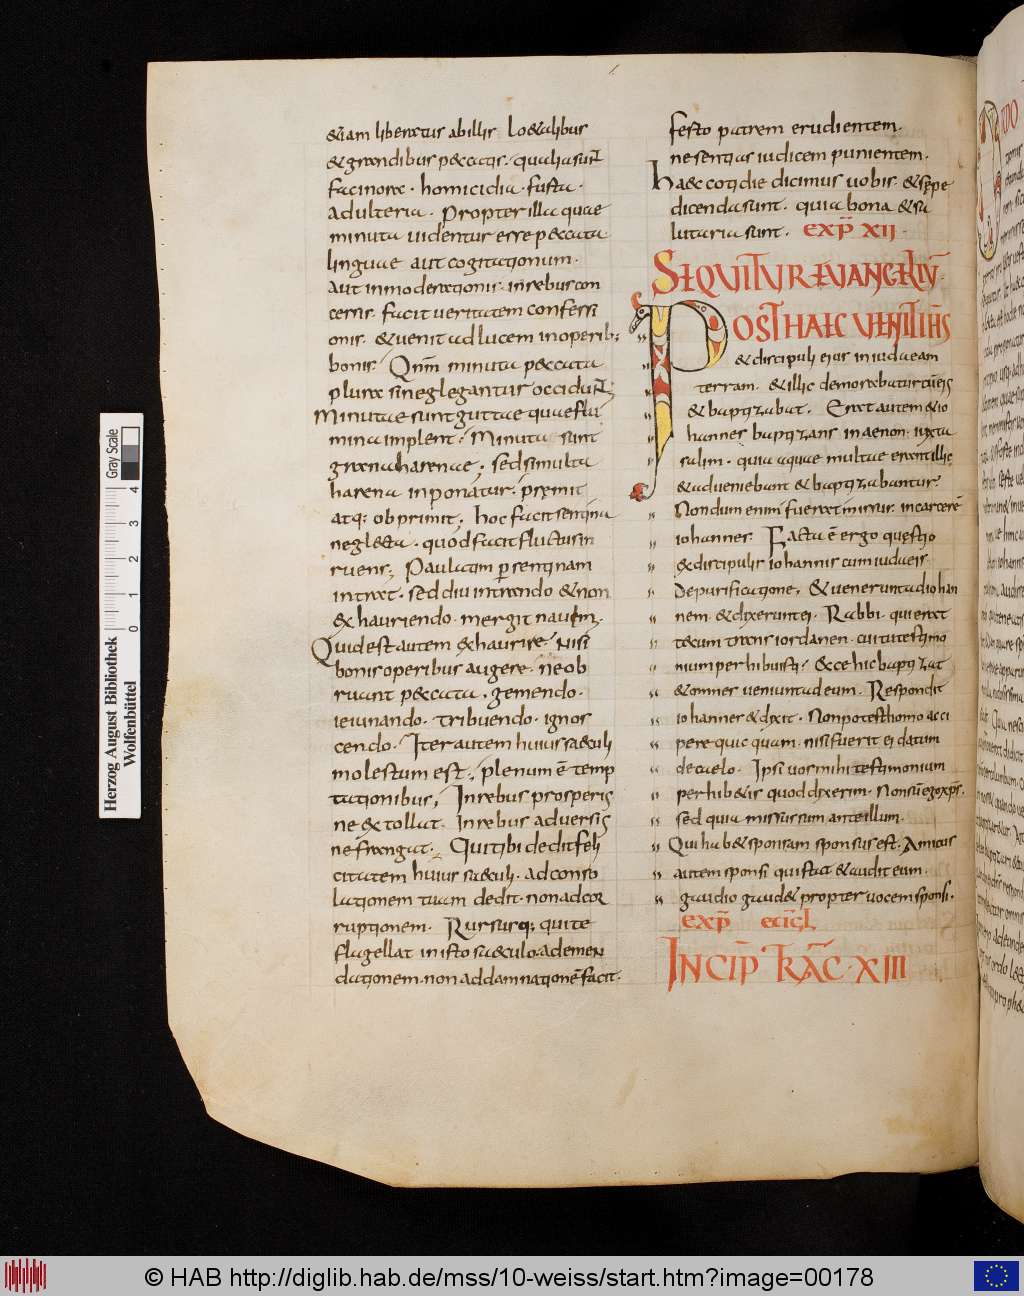 &iam liberetur ab illis. Lo&alibus
& grandibus peccatis. qualia sunt
facinora. homicidia. furta.
adulteria. Propter illa quae
minuta uidentur esse peccata
linguae aut cogitationum.
aut inmoderationis. in rebus con
cessis. facit ueritatem confessi
onis. & uenit ad lucem in operib;
bonis. Qnm minuta peccata
plura si neglegantur occidunt;
Minutae sunt guttae quae flu
mina implent. Minuta sunt
grana harenae. sed si multa
harena inponatur. premit
atq: obprimit. hoc facit sentina
neglecta. quod facit fluctus in
ruens; Paulatim p sentinam
intrat. sed diu intrando & non
exhauriendo. mergit nauem.
Quid est autem exhaurire. Nisi
bonis operibus augere. ne ob
ruant peccata. gemendo.
ieiunando. tribuendo. ignos
cendo. Iter autem huius sæculi
molestum est. plenum ē temp
tationibus; In rebus prosperis
ne extollat. In rebus aduersis
ne frangat. Qui tibi dedit feli
citatem huius sæculi. ad conso
lationem tuam dedit. non ad cor
ruptionem. Rursusq; qui te
flagellat in isto sæculo. ad emen
dationem. non ad damnationē facit.
festo patrem erudientem.
ne sentias iudicem punientem.
Haec cotidie dicimus uobis. & sepe
dicenda sunt. quia bona & sa
lutaria sunt. EXP XII.
SEQUITUR EUANGELIŪ.
POST HAEC UENIT IHS
& discipuli eius in iudaeam
terram. & illic demorabatur cū eis
& baptizabat. Erat autem & io
hannes baptizans in aenon. iuxta
salim. quia aquae multae erant illic
& adueniebant & baptizabantur
Nondum enim fuerat missus. in carcerē
iohannes. Facta ē ergo questio
ex discipulis iohannis cum iudaeis.
De purificatione. & uenerunt ad iohan
nem. & dixerunt ei. Rabbi. qui erat
tecum trans iordanen. cui tu testimo
nium perhibuisti. Ecce hic baptizat
& omnes ueniunt ad eum. Respondit
iohannes & dixit. Non potest homo acci
pere quicquam. nisi fuerit ei datum
de caelo. Ipsi uos mihi testimonium
perhibetis quod dixerim. Non sū ego xps.
sed quia missus sum ante illum.
Qui habet sponsam sponsus est. Amicus
autem sponsi qui stat & audit eum.
gaudio gaudet propter uocem sponsi.
EXP
INCIP TRAC. XIII
Herzog August Bibliothek
Wolfenbüttel
0 1 2 3 4
Gray Scale
© HAB http://diglib.hab.de/mss/10-weiss/start.htm?image=00178